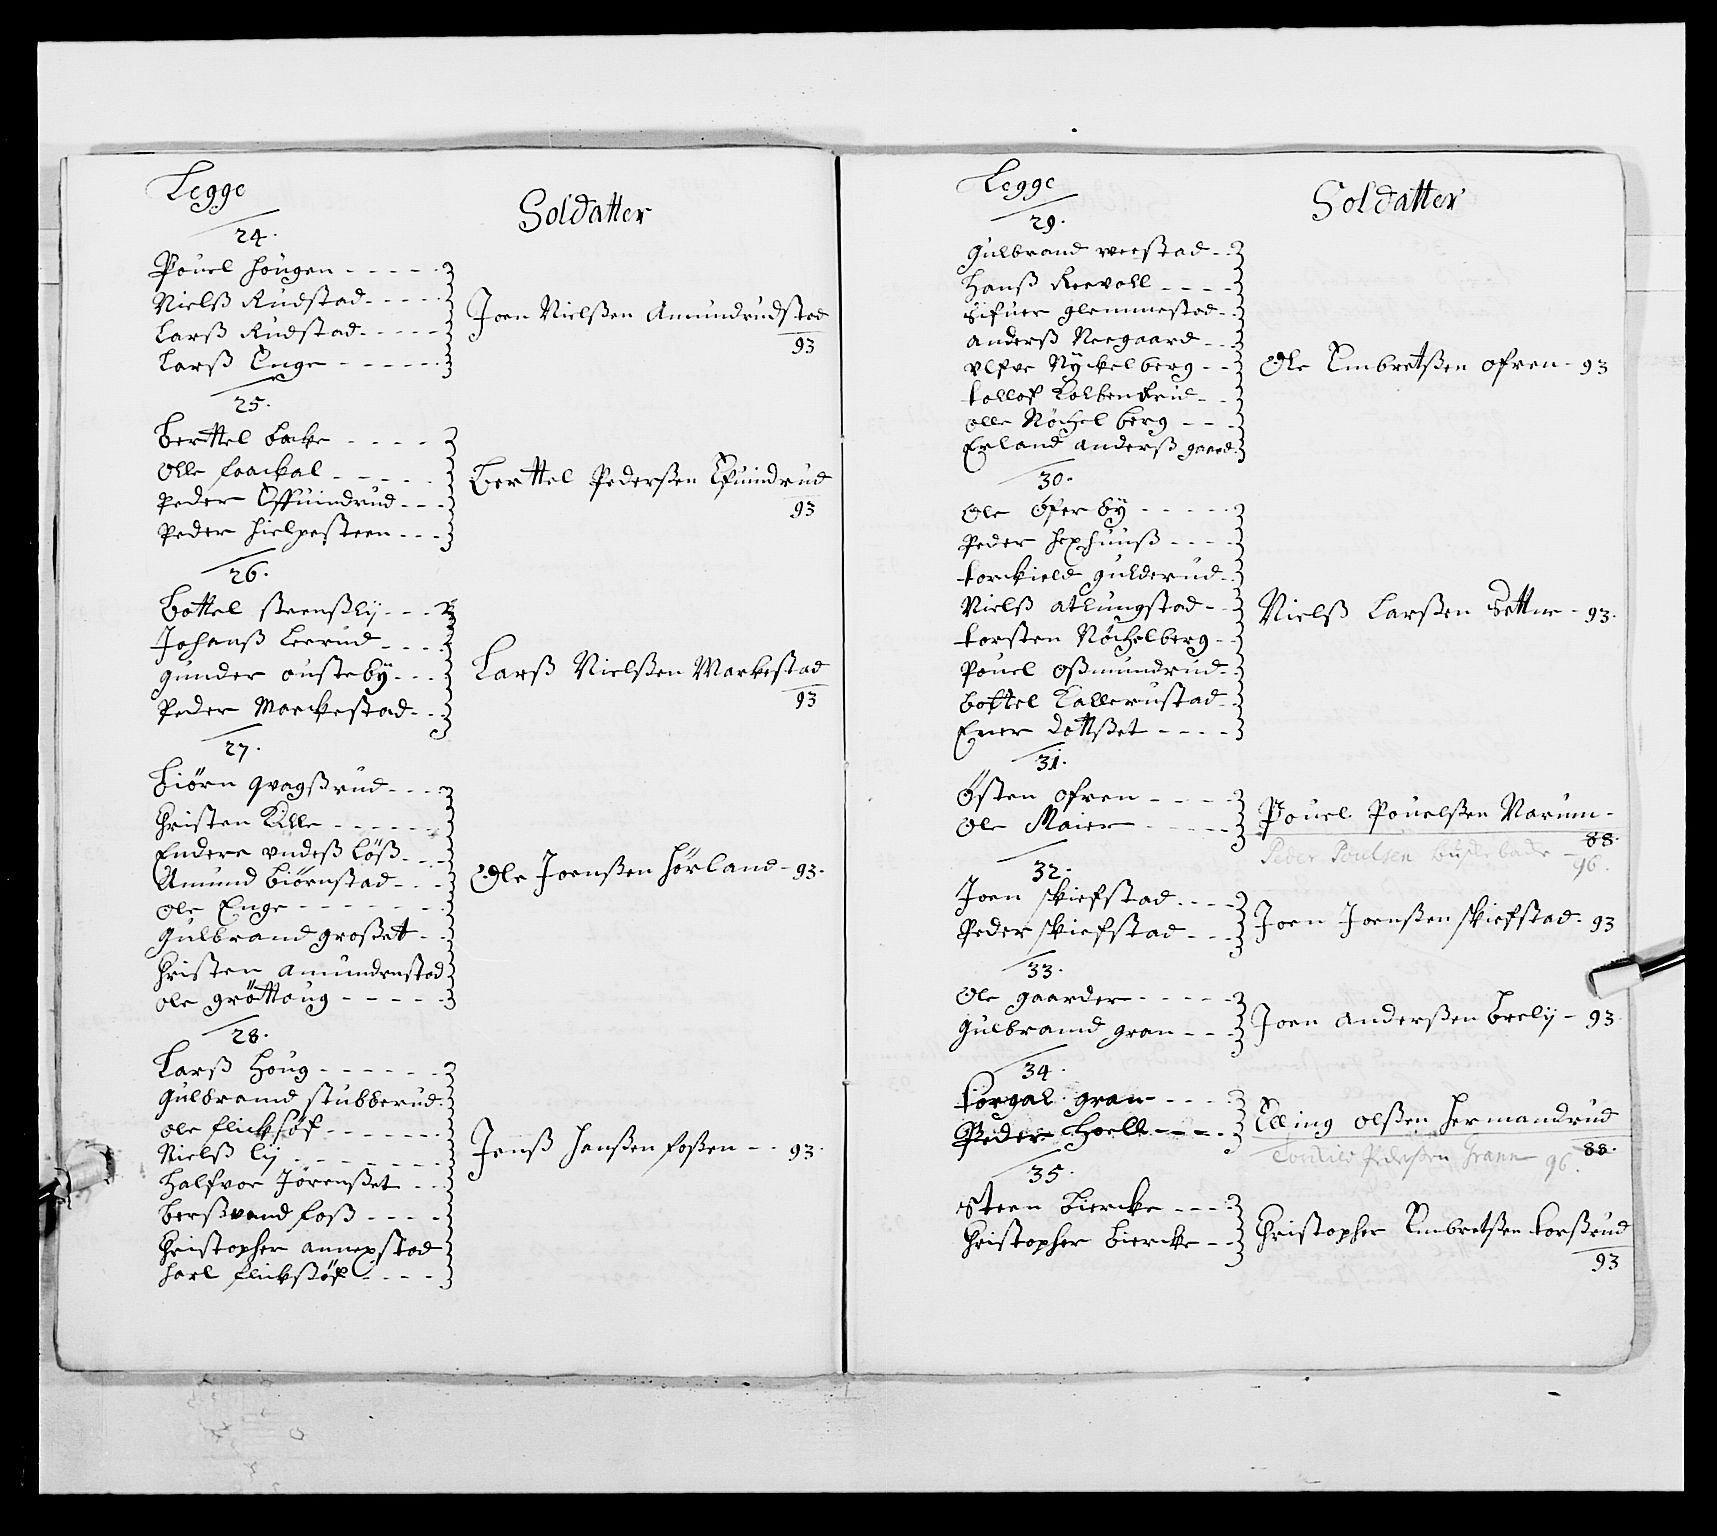 Legge
Soldatter
24.
Pouel Hougen
Nielß Rudstad
Larß Rudstad
Larß Enge
Joen Nielßen Amundrudstad
93
25.
Berttel Backe
Olle Faackal
Peder Effuindrud
Peder Hielpesteen
Berttel Pederßen Efuindrud
93
26.
Bottel Steenßlij
Johanß Leerud
Gunder Ousteby
Peder Marckestad
Larß Nielßen Markestad
93
27.
Biörn Qvagßrud
Christen Kille
Endere Undeß Löß
Amund Biörnstad
Ole Enge
Gulbrand Großet
Christen Amundrustad
Ole Gröttoug
Ole Joenßen Hörland 93.
28.
Larß Houg
Gulbrand Stubberud
Ole Flicksöf
Nielß Lij
Halfvor Jörenßet
Berßvend Foß
Christopher Annexstad
Harl Flickßöf
Jenß Hanßen Foßen 93.
Legge
Soldatter
29.
Gulbrand Veestad
Hanß Reevoll
Sifuer Glemmestad
Anderß Neegaard
Ulfve Nyckelberg
Tollof Kolbenrud
Olle Nöchelberg
Erland Anderß gaard
Ole Embretßen Ofren 93
30.
Ole Öfer by
Peder Hexhuuß
Torckield Gulderud
Nielß Atlungstad
Torsten Nöchelberg
Pouel Oßmundrud
Bottel Kallerustad
Ener Dottßet
Nielß Larßen Settne 93.
31.
Östen Ofren
Ole Maier
Pouel Pouelßen Narum
88.
Peder Poulsen
96.
32.
Joen Skiefstad
Peder Skiefstad
Joen Joenßen Skiefstad 93
33.
Ole Gaarder
Gulbrand Gran
Joen Anderßen Brelij 93
34.
Torgal Gran
Peder Hoell
Elling Olßen Hermandrud
88.
Torkild Pederßen Grann 96.
35.
Steen Biercke
Christopher Biercke
Christopher Embretßen Torßrud
93